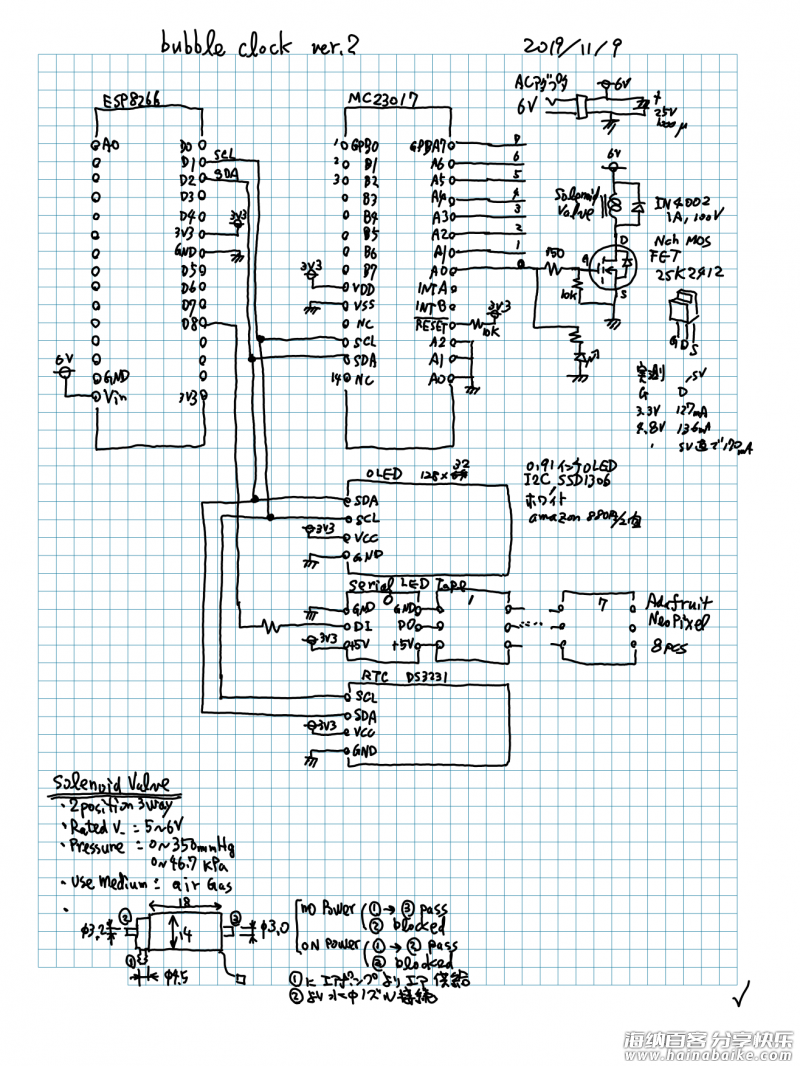 bubble clock ver.2
2019/11/9
ESP8266
A0
D0
D1
SCL
D2
SDA
D3
D4
3V3
3V3
GND
D5
D6
D7
D8
6V
GND
Vin
3V3
MC23017
1 GPB0
2 B1
3 B2
B3
B4
B5
B6
B7
3V3
VDD
VSS
NC
SCL
SDA
14 NC
GPBA7
A6
6
A5
5
A4
4
A3
3
A2
2
A1
1
A0
0
INTA
INTB
RESET
3V3
10K
A2
A1
A0
ACアダプタ
6V
6V
+
25V
1000μ
6V
Solenoid
Valve
IN4002
1A, 100V
Nch MOS
FET
2SK2412
150
G
D
S
10k
G D S
実測
G D
3.3V 127mA
4.8V 136mA
5V直で170mA
OLED 128×32
SDA
SCL
3V3
VCC
GND
0.91インチOLED
I2C SSD1306
ホワイト
amazon 880円/2個
Serial LED Tape
0
GND
DI
3V3
+5V
GND
DO
+5V
1
7
Adafruit
NeoPixel
8pcs
RTC DS3231
SCL
SDA
3V3
VCC
GND
Solenoid Valve
・2position 3way
・Rated V_ = 5~6V
・Pressure = 0~350mmHg
0~46.7 kPa
・Use Medium: air Gas
18
②
φ3.2
14
③
φ3.0
①
φ4.5
no power ①→③ pass
② blocked
on power ①→② pass
③ blocked
①にエアポンプよりエア供給
②より水中ノズル接続
海纳百客 分享快乐
www.hainabaike.com